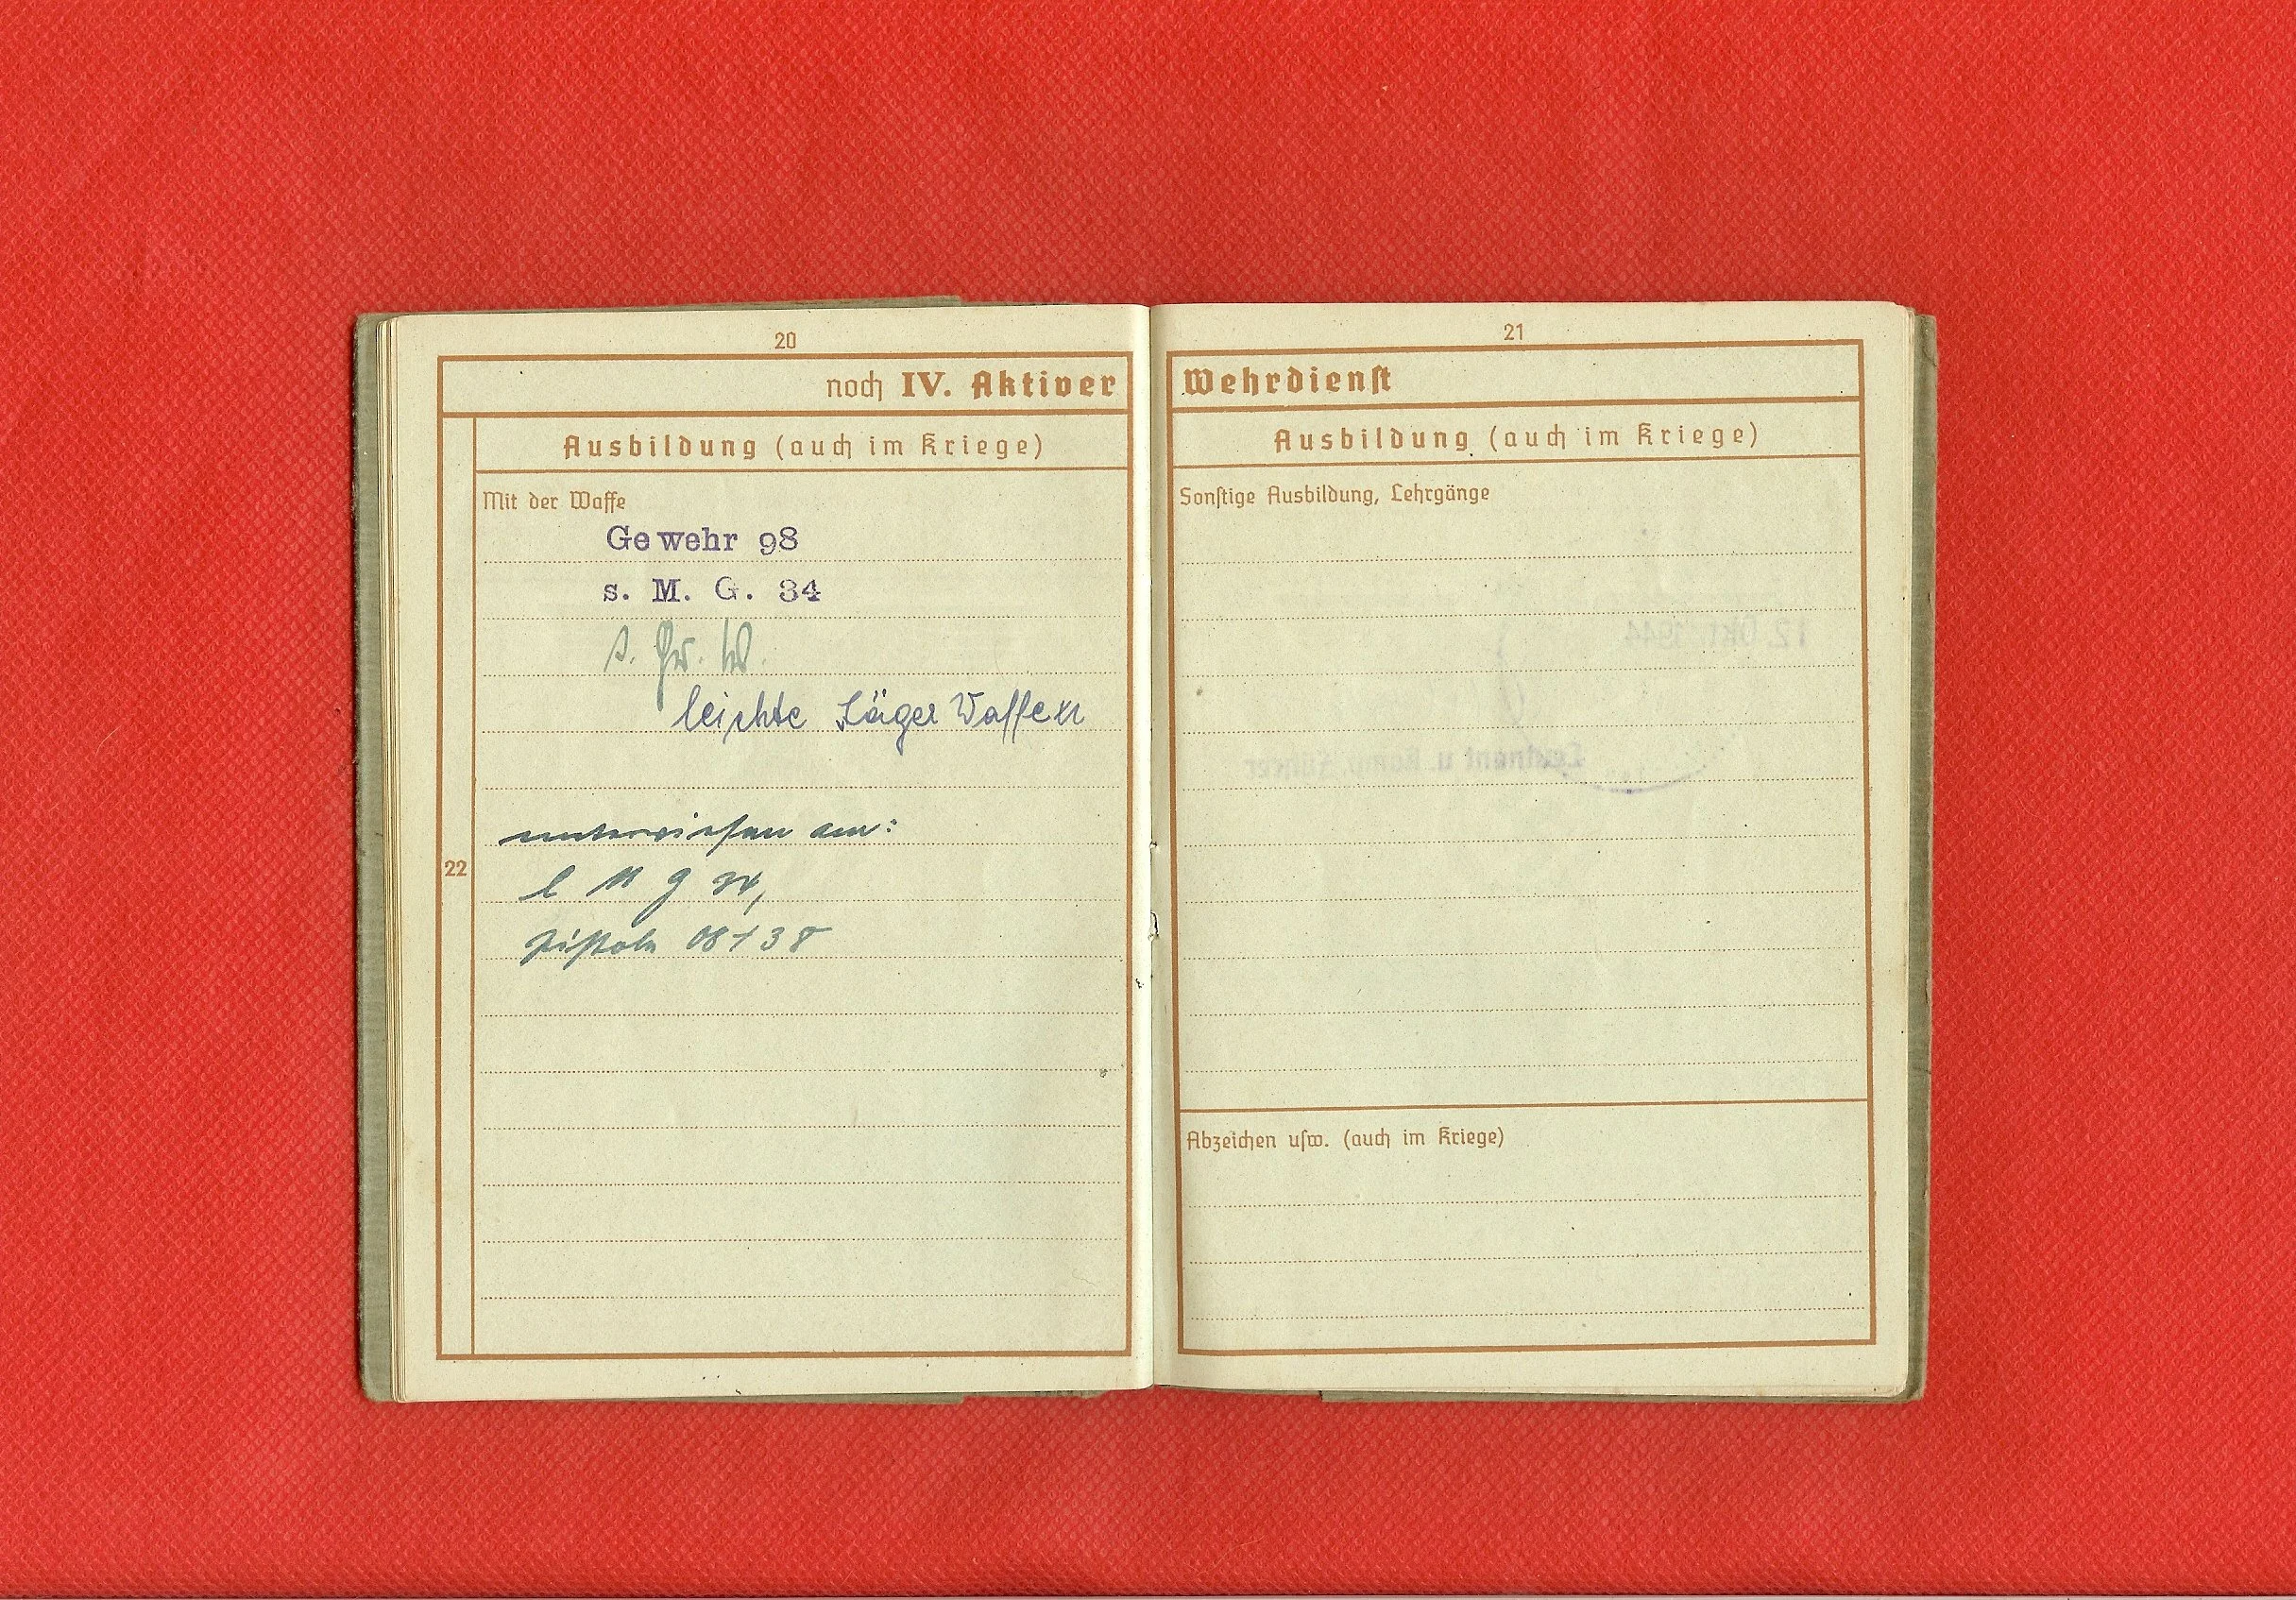 20
noch IV. Aktiver
Ausbildung (auch im Kriege)
Mit der Waffe
Gewehr 98
s. M. G. 34
s. Gr. W.
leichte Jäger Waffen
22
unterwiesen am:
l M G 34,
Pistole 08 + 38
21
Wehrdienst
Ausbildung (auch im Kriege)
Sonstige Ausbildung, Lehrgänge
12. Okt. 1944
Leutnant u. Komp. Führer
Abzeichen usw. (auch im Kriege)